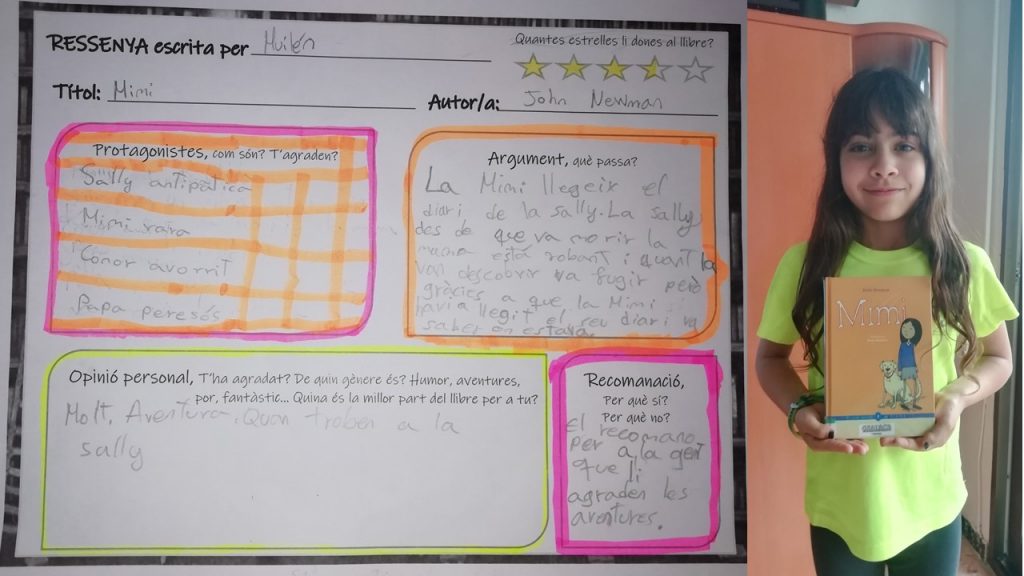 RESSENYA escrita per Muilén
Quantes estrelles li dones al llibre?
Títol: Mimi
Autor/a: John Newman
Protagonistes, com són? T'agraden?
Sally antipàtica
Mimi raira
Conor avorrit
Papa peresós
Argument, què passa?
La Mimi llegeix el
diari de la sally. La sally
des de que va morir la
mama està robant i quant la
van descobrir va fugir però
gràcies a que la Mimi
havia llegit el seu diari va
saber on estava.
Opinió personal, T'ha agradat? De quin gènere és? Humor, aventures,
por, fantàstic... Quina és la millor part del llibre per a tu?
Molt. Aventura. Quan troben a la
sally
Recomanació,
Per què sí?
Per què no?
El recomano
per a la gent
que li
agraden les
aventures.
Mimi